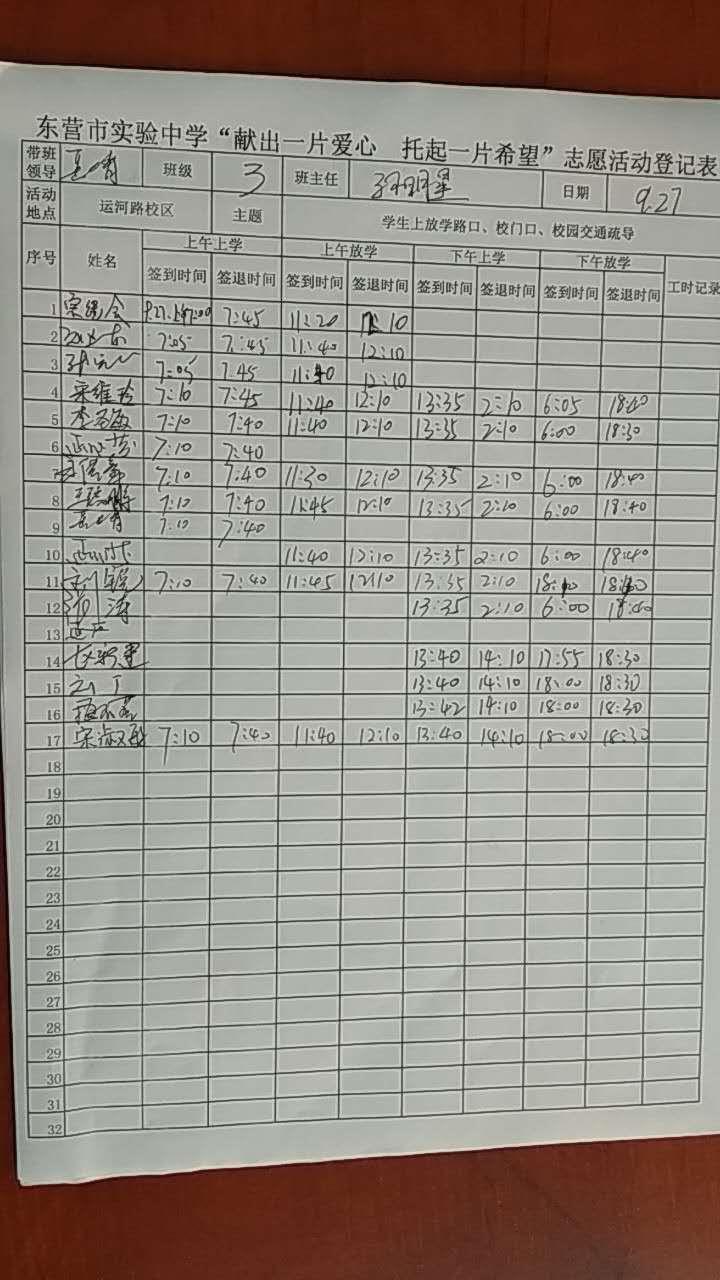 东营市实验中学“献出一片爱心 托起一片希望”志愿活动登记表
带班领导 班级 3 班主任 日期 9.27
活动地点 运河路校区 主题 学生上放学路口、校门口、校园交通疏导
序号 姓名 上午上学 上午放学 下午上学 下午放学 工时记录
签到时间 签退时间 签到时间 签退时间 签到时间 签退时间 签到时间 签退时间
1 7:45 11:20 12:10
2 7:05 7:45 11:40 12:10
3 7:05 7.45 11:40 12:10
4 宋维玲 7:10 7:45 11:40 12:10 13:35 2:10 6:05 18:40
5 7:10 7:40 11:40 12:10 13:35 2:10 6:00 18:30
6 7:10 7:40
7 7:10 7:40 11:30 12:10 13:35 2:10 6:00 18:40
8 7:10 7:40 11:45 12:10 13:35 2:10 6:00 18:40
9 7:10 7:40
10 11:40 12:10 13:35 2:10 6:00 18:40
11 7:10 7:40 11:45 12:10 13:35 2:10
12 13:35 2:10 6:00 18:40
13
14 13:40 14:10 17:55 18:30
15 13:40 14:10 18:00 18:30
16 13:42 14:10 18:00 18:30
17 宋淑敏 7:10 7:40 11:40 12:10 13:40 14:10 18:00 18:30
18
19
20
21
22
23
24
25
26
27
28
29
30
31
32